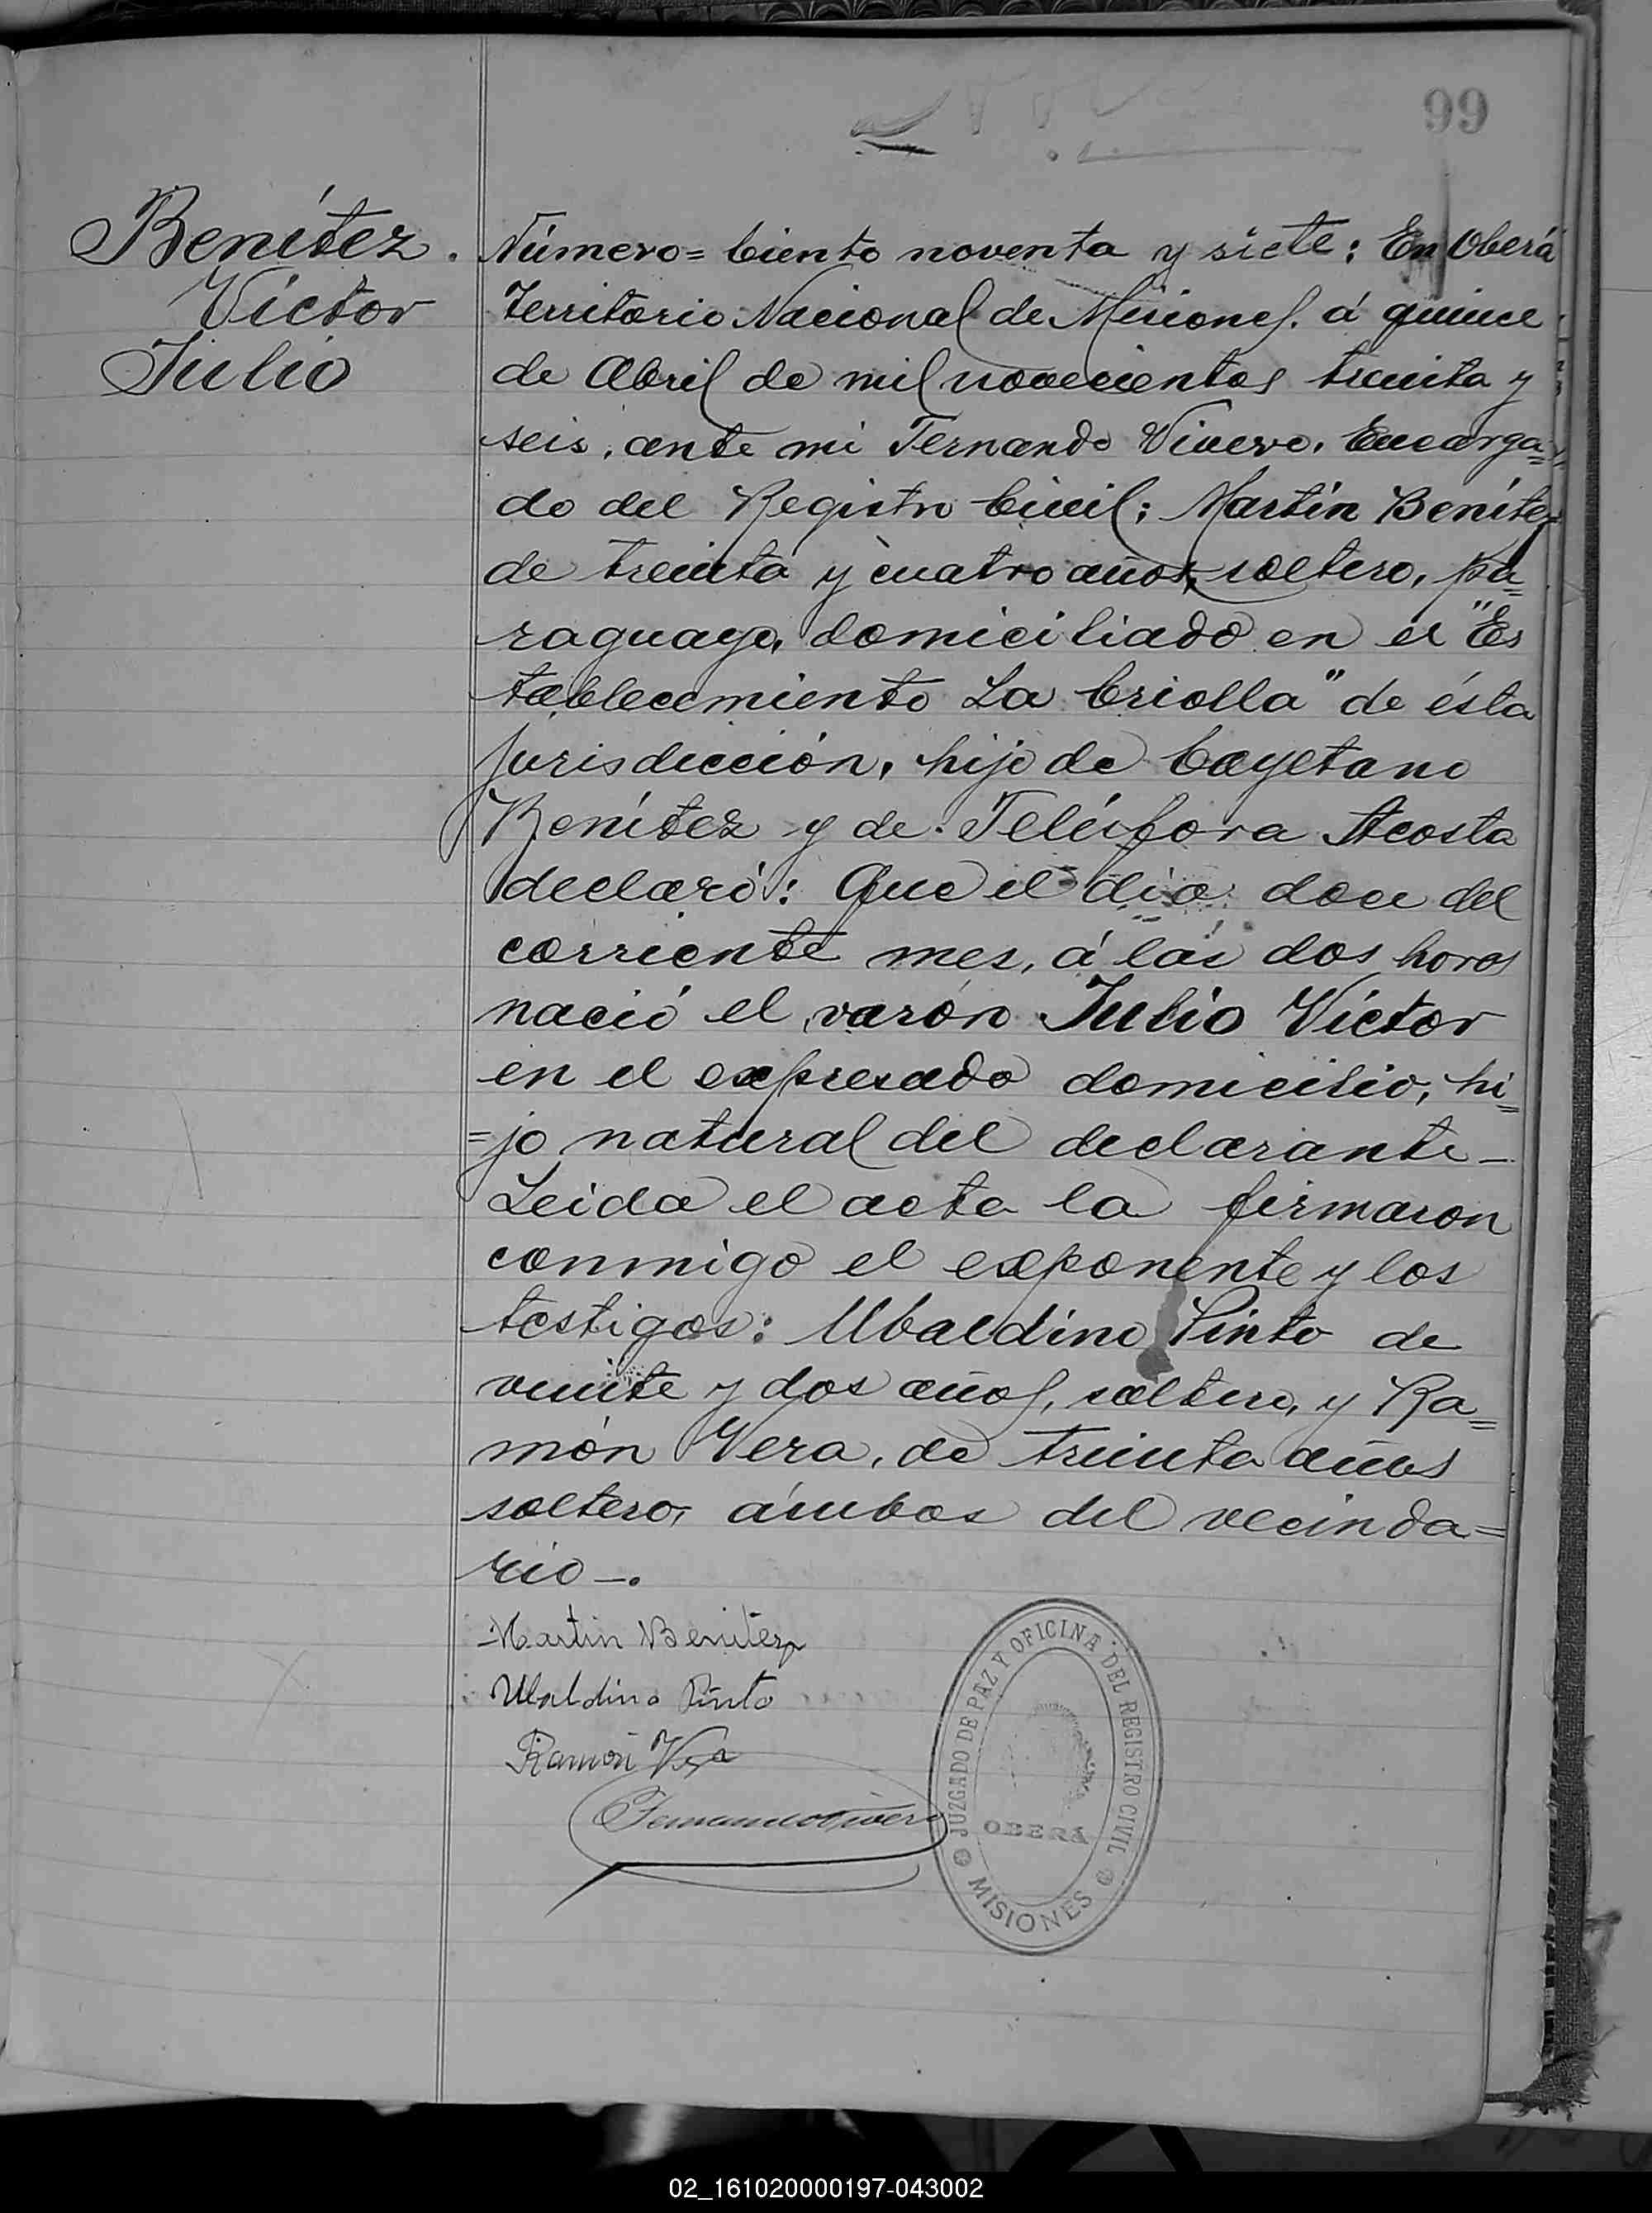 99
Benítez.
Víctor
Julio
Número= Ciento noventa y siete: En Oberá
Territorio Nacional de Misiones. á quince
de Abril de mil novecientos treinta y
seis, ante mi Fernando Vivero, Encarga=
do del Registro Civil; Martín Benítez
de treinta y cuatro años, soltero, pa=
raguayo, domiciliado en el "Es
tablecimiento La Criolla" de ésta
jurisdicción, hijo de Cayetano
Benítez y de Telésfora Acosta
declaró: Que el día doce del
corriente mes, á las dos horas
nació el varón Julio Víctor
en el expresado domicilio, hi=
=jo natural del declarante_
Leida el acta la firmaron
conmigo el exponente y los
testigos: Ubaldino Pinto de
veinte y dos años, soltero, y Ra=
món Vera, de treinta años
soltero, ámbos del vecinda=
rio_.
Martin Benitez
Ubaldino Pinto
Ramón Vera
Fernando Vivero
JUZGADO DE PAZ Y OFICINA DEL REGISTRO CIVIL
OBERÁ
MISIONES
02_161020000197-043002